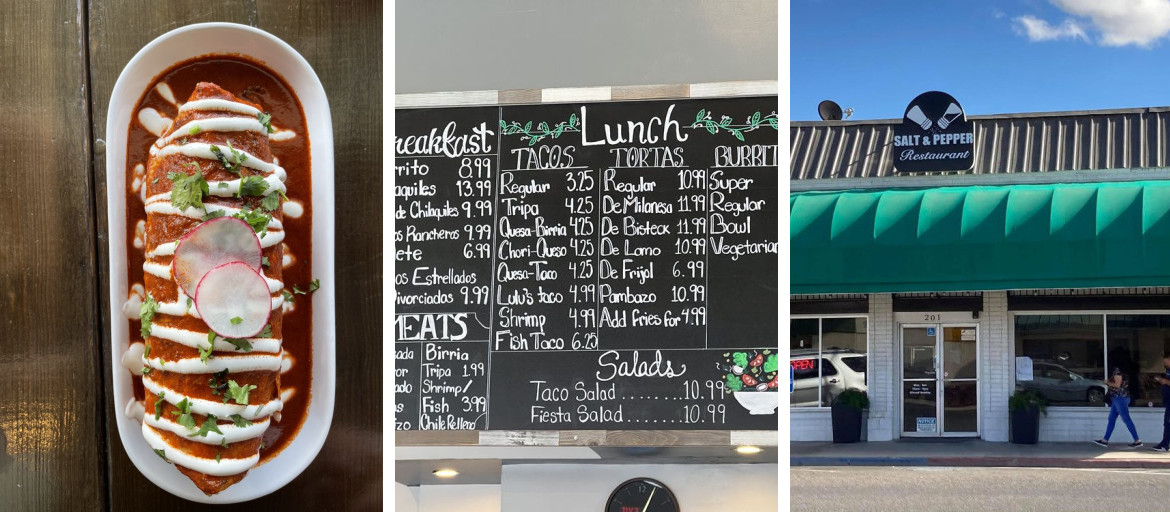 reakfast
rrito 8.99
aquiles 13.99
de Chilaquiles 9.99
os Rancheros 9.99
ete 6.99
os Estrellados
Divorciadas 9.99
MEATS
ada
or
ado
s
izo
Birria
Tripa 1.99
Shrimp/
Fish 3.99
Chile Relleno
Lunch
TACOS
Regular 3.25
Tripa 4.25
Quesa-Birria 4.25
Chori-Queso 4.25
Quesa-Taco 4.25
Lulu's taco 4.99
Shrimp 4.99
Fish Taco 6.25
TORTAS
Regular 10.99
De Milanesa 11.99
De Bisteck 11.99
De Lomo 10.99
De Frijol 6.99
Pambazo 10.99
Add fries for 4.99
BURRIT
Super
Regular
Bowl
Vegetarian
Salads
Taco Salad.......10.99
Fiesta Salad.....10.99
SALT & PEPPER
Restaurant
201
OPEN
NOTICE